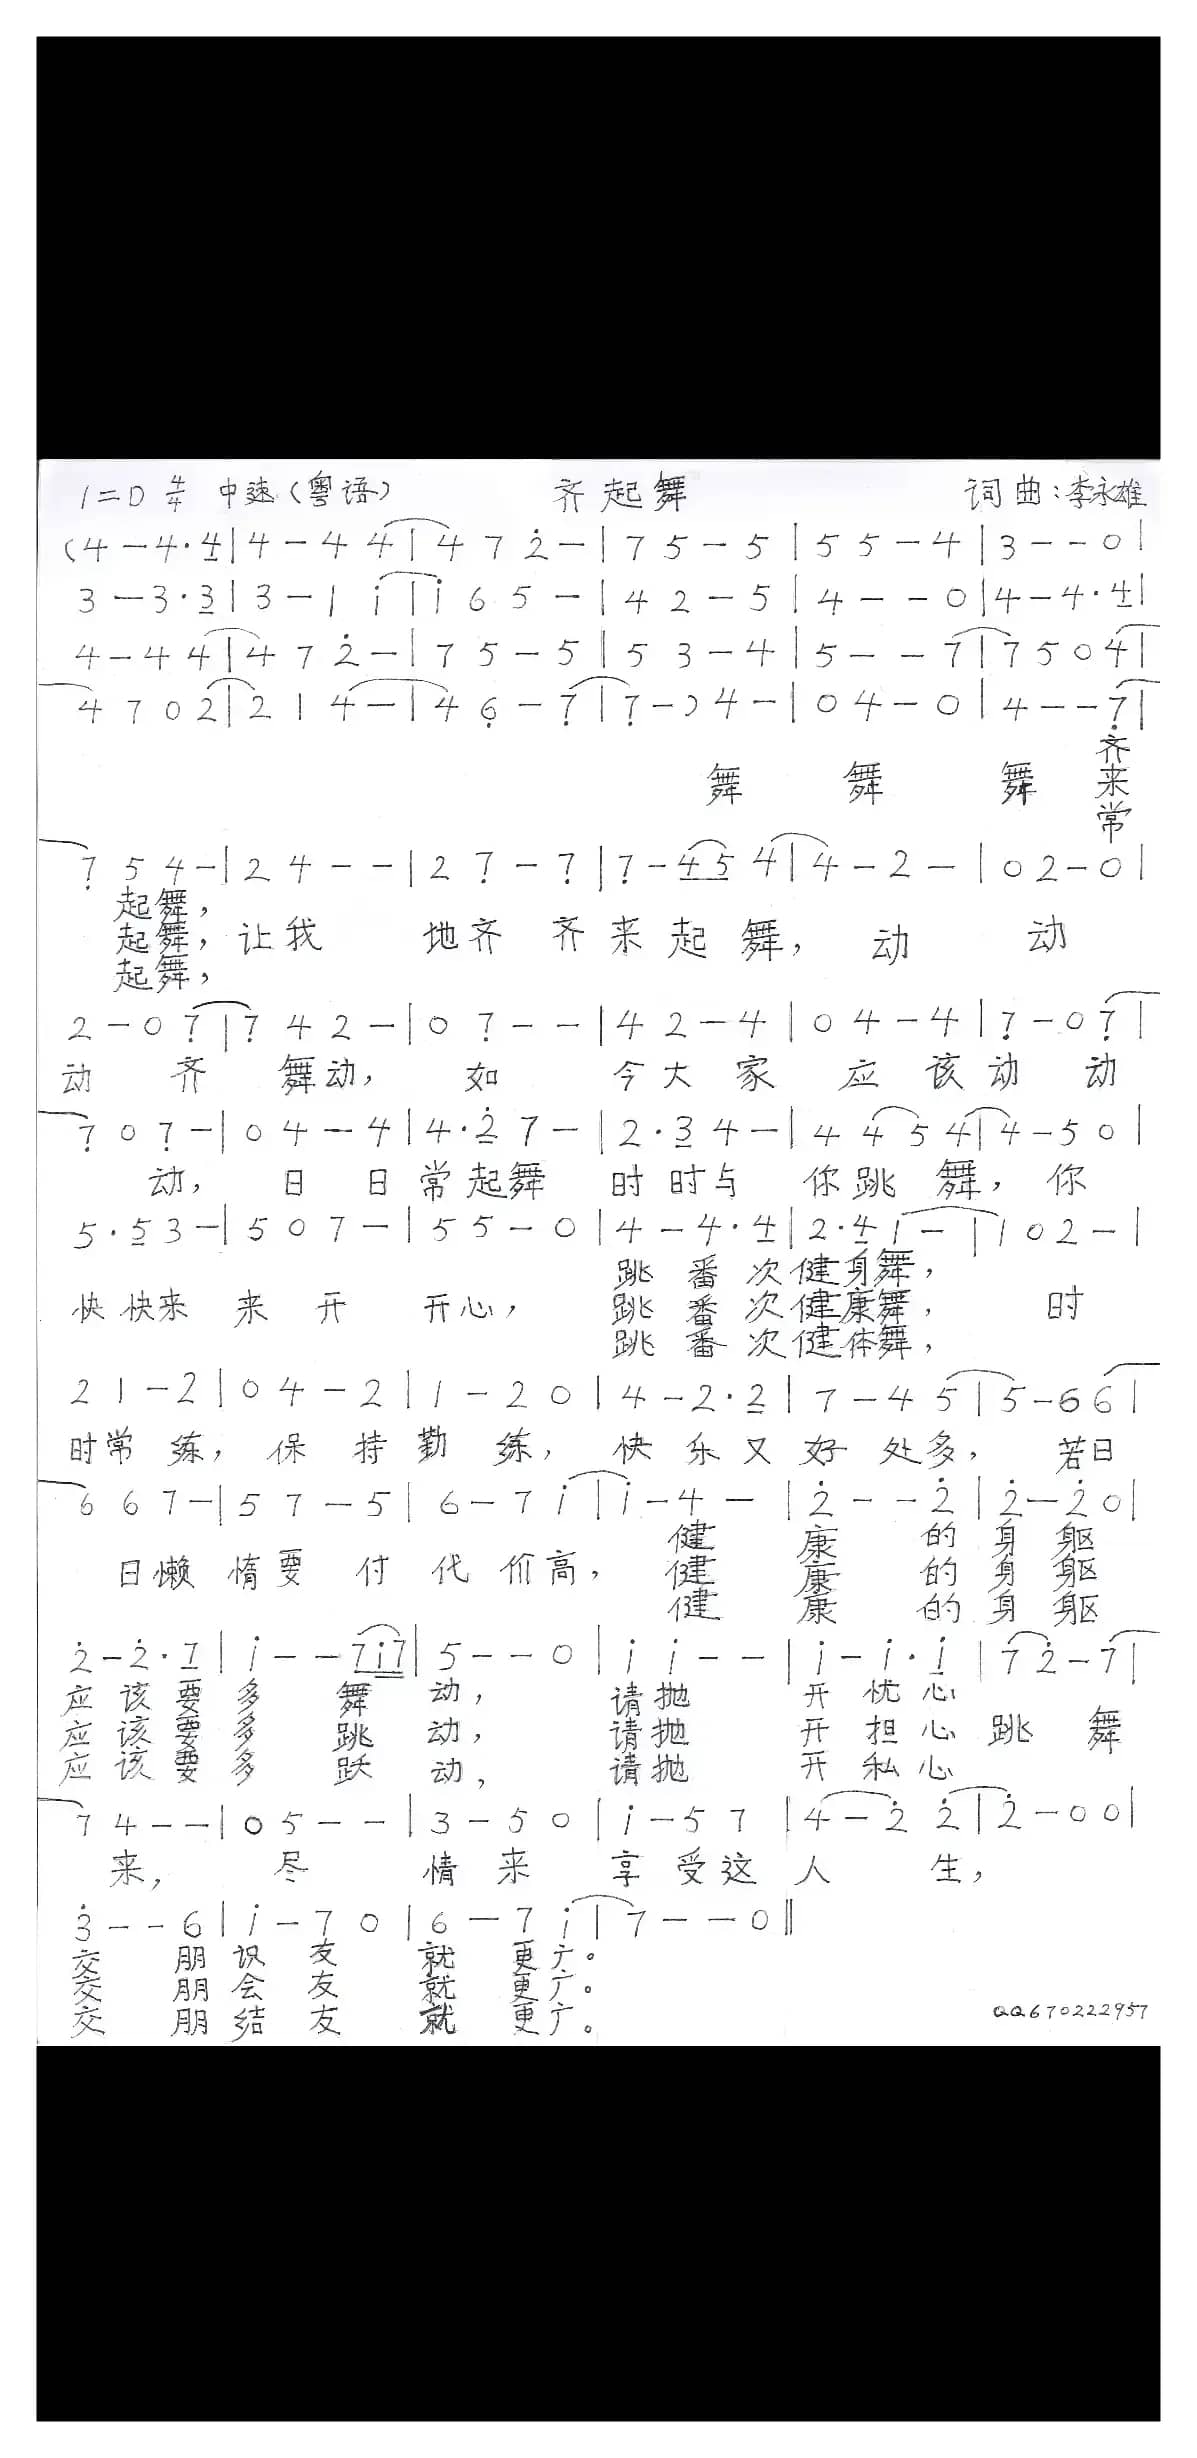 1=D 4/4 中速(粤语) 齐起舞 词曲:李永雄
(4－4·4|4－44|472̇－|75－5|55－4|3－－0|
3－3·3|3－1i̇|i̇65－|42－5|4－－0|4－4·4|
4－44|472̇－|75－5|53－4|5－－7|7504|
4702|214－|46̣－7̣|7̣－)4－|04－0|4－－7̣|
齐
舞 舞 舞 来
常
7̣54－|24－－|27̣－7̣|7̣－454|4－2－|02－0|
起舞,
起舞,让我 地齐 齐来起舞,动 动
起舞,
2－07̣|7̣42－|07̣－－|42－4|04－4|7̣－07̣|
动 齐 舞动, 如 今大家 应该动 动
7̣07̣－|04－4|4·2̇7－|2·34－|4454|4－50|
动, 日 日常起舞 时时与 你跳舞, 你
5·53－|507－|55－0|4－4·4|2·41－|102－|
跳番次健身舞,
快快来 来开 开心, 跳番次健康舞, 时
跳番次健体舞,
21－2|04－2|1－20|4－2·2|7－45|5－66|
时常练, 保持勤练, 快乐又好处多, 若日
667－|57－5|6－7i̇|i̇－4－|2̇－－2̇|2̇－2̇0|
健 康 的身躯
日懒惰要付代价高, 健 康 的身躯
健 康 的身躯
2̇－2̇·7|i̇－－7i̇7|5－－0|i̇i̇－－|i̇－i̇·i̇|72̇－7|
应该要多 舞动, 请抛 开忧心
应该要多 跳动, 请抛 开担心跳舞
应该要多 跃动, 请抛 开私心
74－－|05－－|3－50|i̇－57|4－2̇2̇|2̇－00|
来, 尽 情来 享受这人 生,
3̇－－6|i̇－70|6－7i̇|7－－0‖
交 朋识友 就 更广。
交 朋会友 就 更广。
交 朋结友 就 更广。
QQ670222957